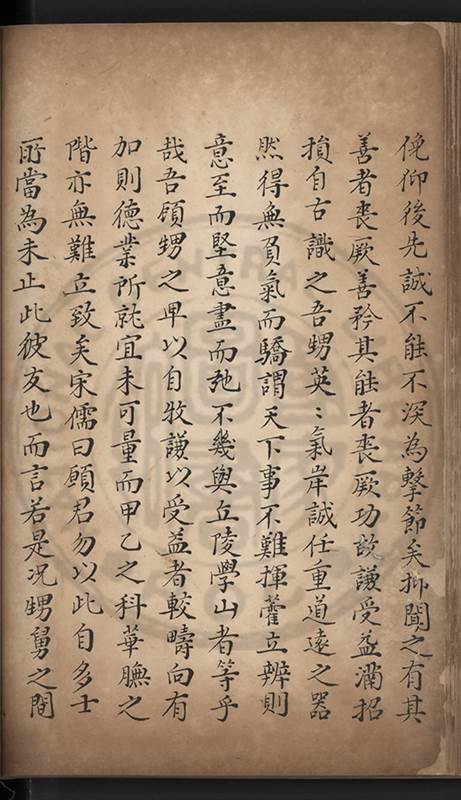 俛仰後先誠不能不深為擊節矣抑聞之有其
善者喪厥善矜其能者喪厥功故謙受益滿招
損自古識之吾甥英〻氣岸誠任重道遠之器
然得無負氣而驕謂天下事不難揮藿立辨則
意至而堅意盡而弛不幾與丘陵學山者等乎
哉吾頋甥之卑以自牧謙以受益者較疇向有
加則德業所就宜未可量而甲乙之科華膴之
階亦無難立致矣宋儒曰願君勿以此自多士
所當為未止此彼友也而言若是况甥舅之間